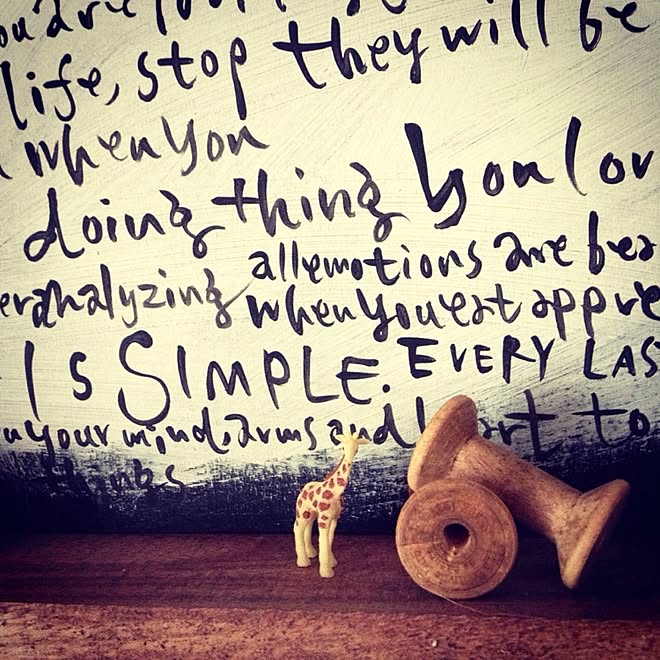 life, stop they will be
when you
doing thing you lov
eranalyzing all emotions are bea
when you eat appre
Is SIMPLE. EVERY LAS
your mind, arms and art to
thinks